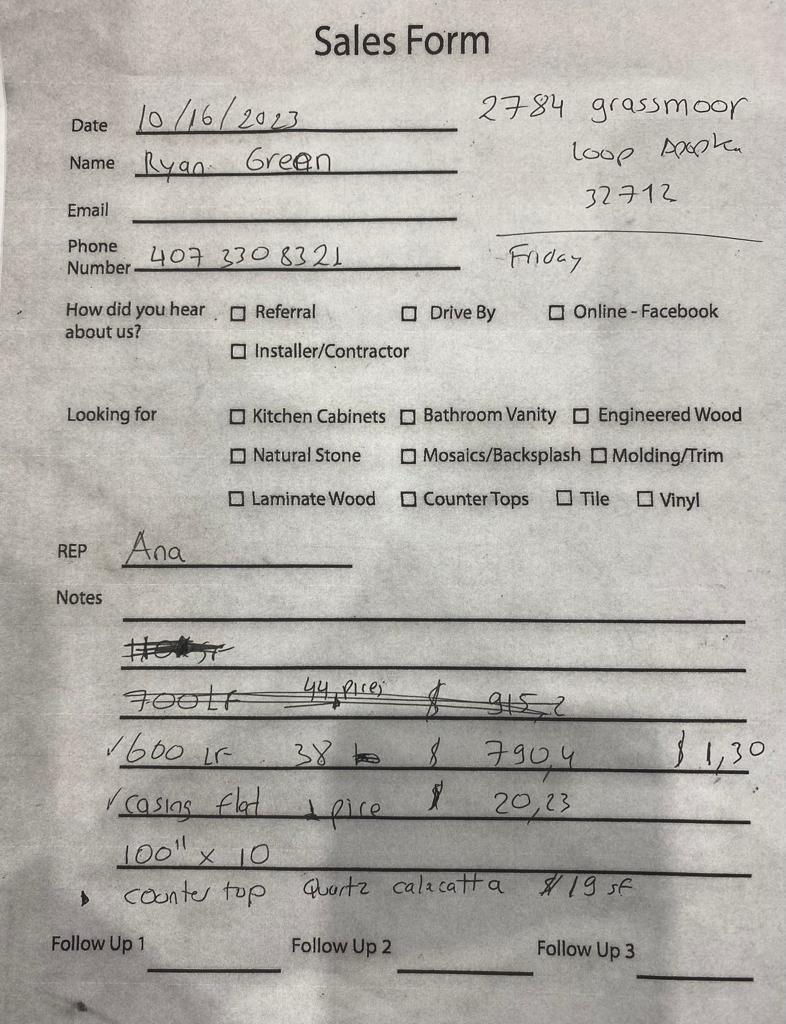 Sales Form
Date 10/16/2023
2784 grassmoor
loop Apopka
32712
Name Ryan Green
Email
Friday
Phone
Number 407 330 8321
How did you hear
about us?
☐ Referral ☐ Drive By ☐ Online - Facebook
☐ Installer/Contractor
Looking for ☐ Kitchen Cabinets ☐ Bathroom Vanity ☐ Engineered Wood
☐ Natural Stone ☐ Mosaics/Backsplash ☐ Molding/Trim
☐ Laminate Wood ☐ Counter Tops ☐ Tile ☐ Vinyl
REP Ana
Notes
700 LF 44 pices $ 915,2
✓600 LF 38 $ 790,4 $ 1,30
✓casing flat 1 pice $ 20,23
100" x 10
counter top Quartz calacatta $19 SF
Follow Up 1 Follow Up 2 Follow Up 3